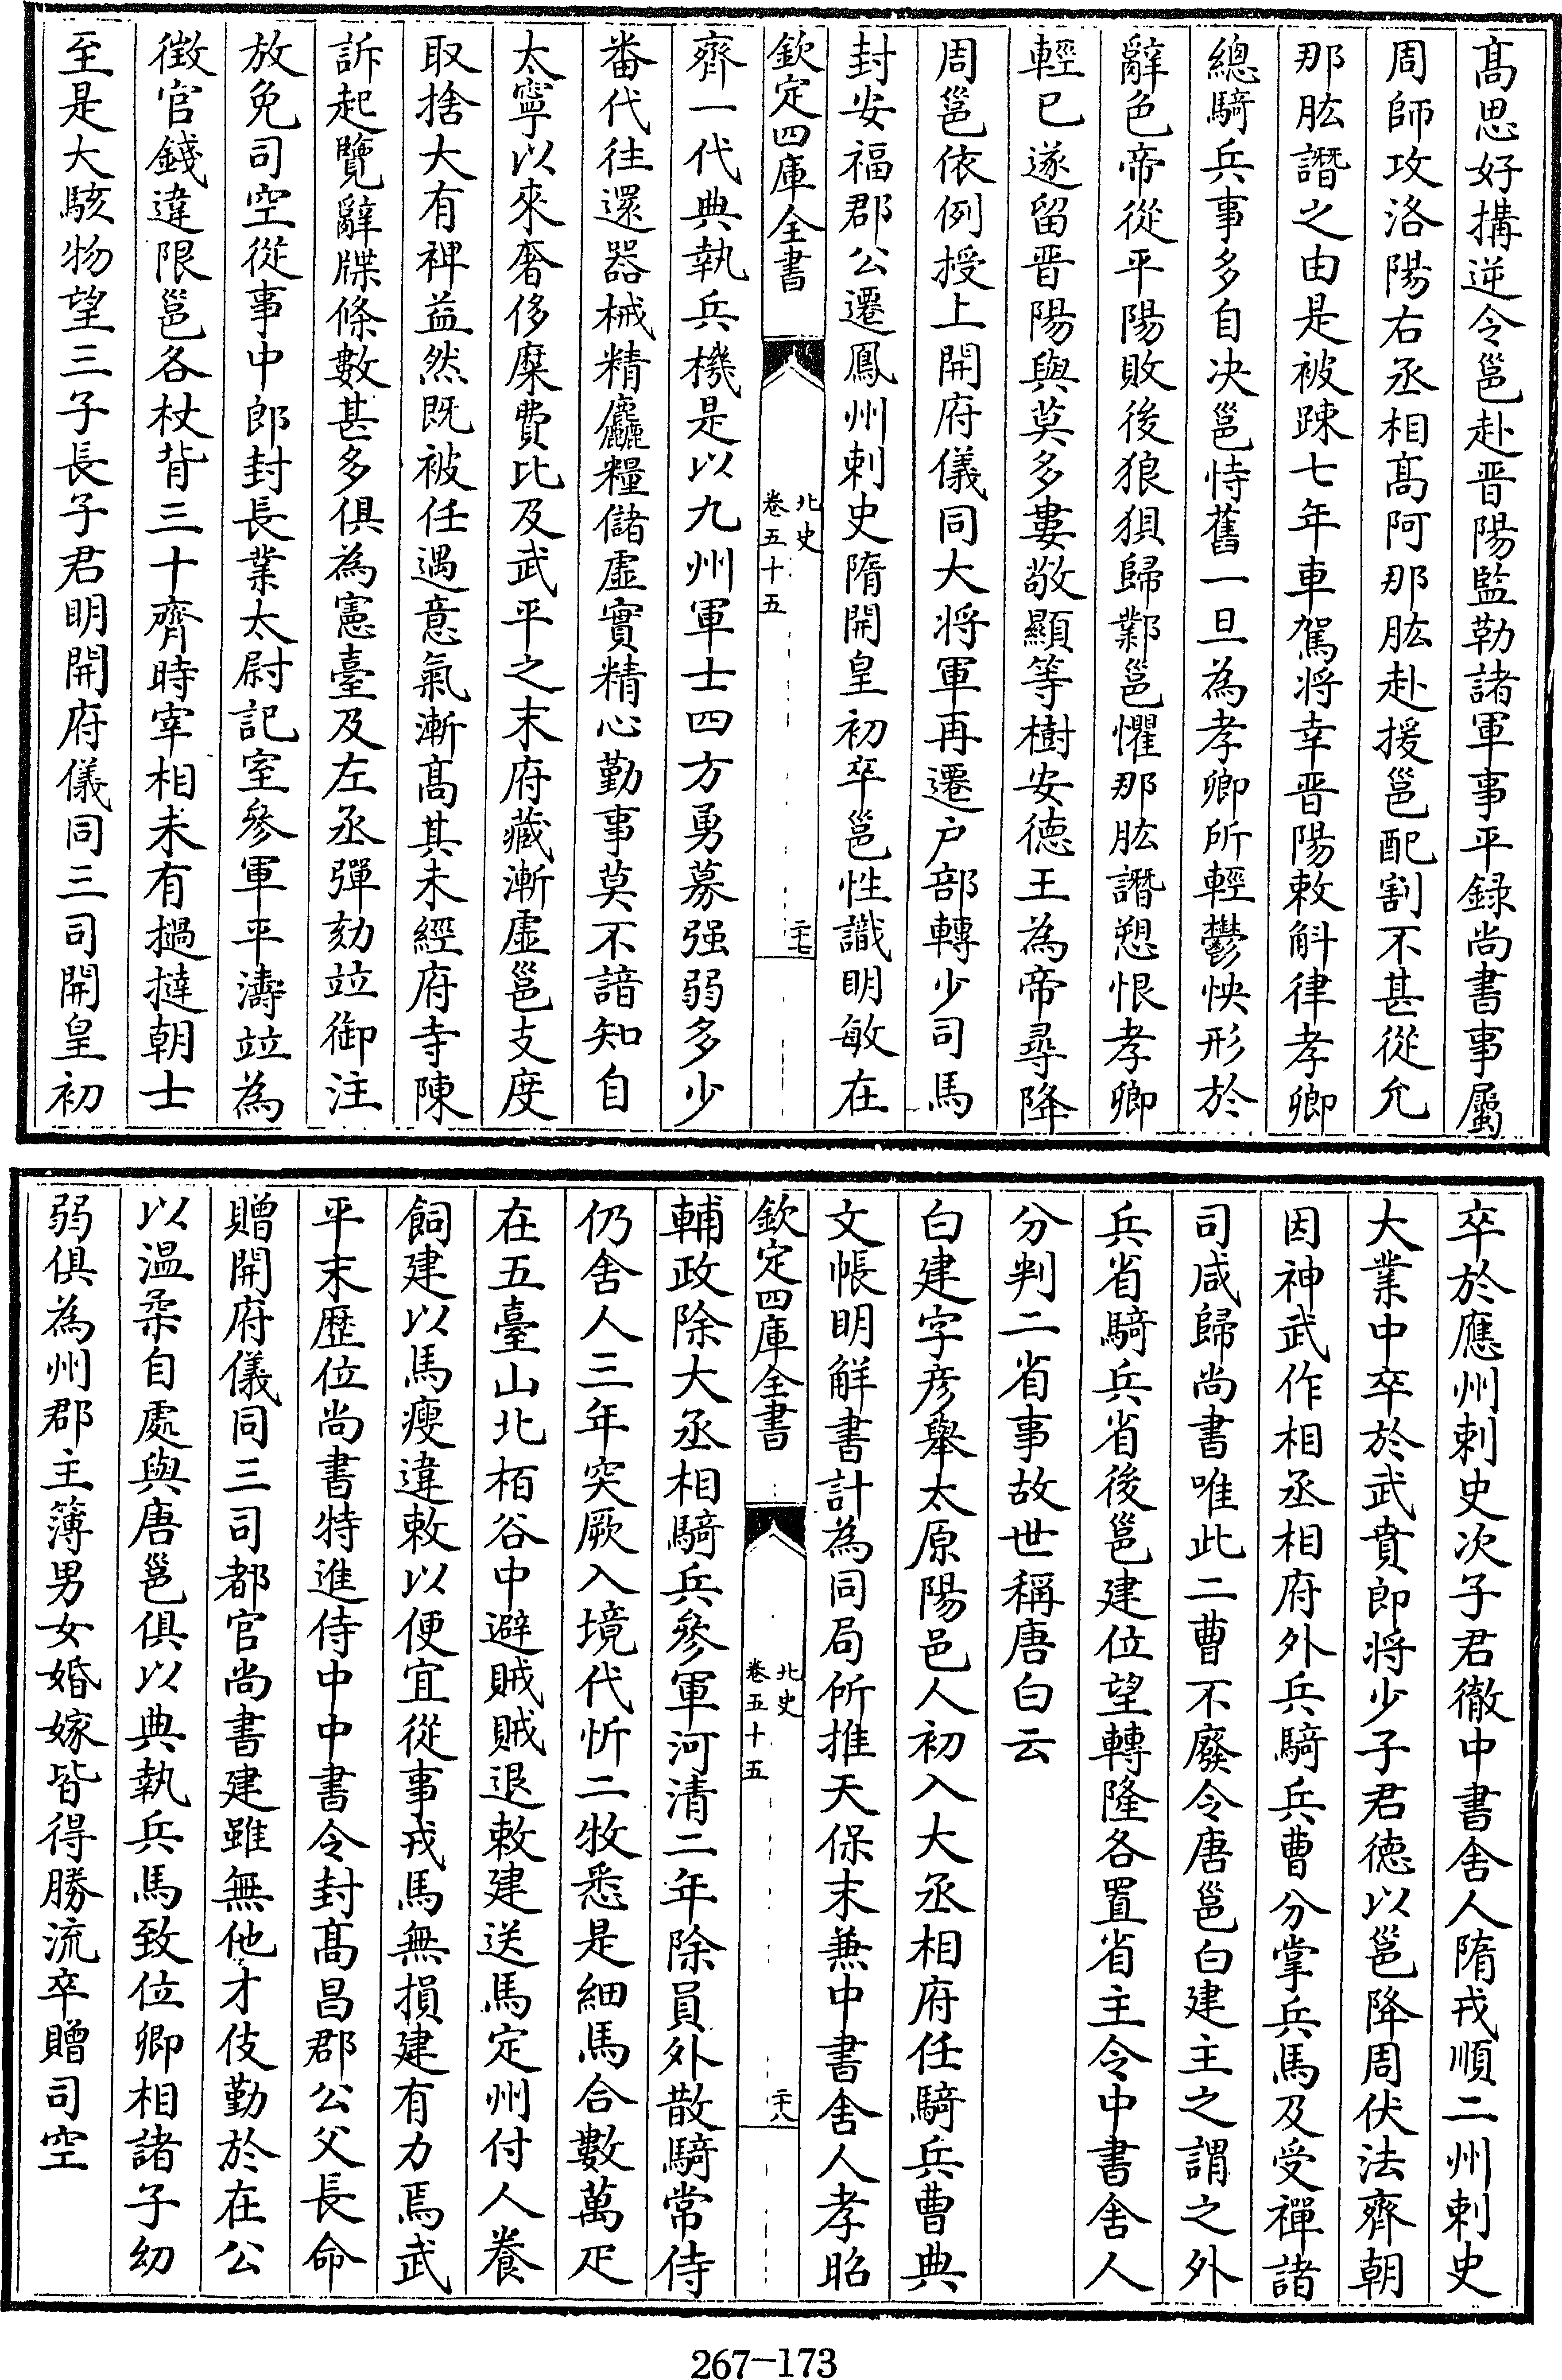 髙思好搆逆令邕赴晋陽監勒諸軍事平録尚書事屬
周師攻洛陽右丞相髙阿那肱赴援邕配割不甚從允
那肱譖之由是被踈七年車駕将幸晋陽敕斛律孝卿
總騎兵事多自决邕恃舊一旦為孝卿所輕鬱怏形於
辭色帝從平陽敗後狼狽歸鄴邕懼那肱譖愬恨孝卿
輕已遂留晋陽與莫多婁敬顯等樹安徳王為帝尋降
周邕依例授上開府儀同大将軍再遷户部轉少司馬
封安福郡公遷鳳州刺史隋開皇初卒邕性識明敏在
欽定四庫全書
北史
卷五十五
二十七
齊一代典執兵機是以九州軍士四方勇募强弱多少
番代往還器械精麤糧儲虚實精心勤事莫不諳知自
太寧以來奢侈糜費比及武平之末府藏漸虚邕支度
取捨大有裨益然既被任遇意氣漸髙其未經府寺陳
訴起覽辭牒條數甚多俱為憲臺及左丞彈劾竝御注
放免司空從事中郎封長業太尉記室參軍平濤竝為
徴官錢違限邕各杖背三十齊時宰相未有撾撻朝士
至是大駭物望三子長子君明開府儀同三司開皇初
卒於應州刺史次子君徹中書舍人隋戎順二州刺史
大業中卒於武賁郎将少子君徳以邕降周伏法齊朝
因神武作相丞相府外兵騎兵曹分掌兵馬及受禪諸
司咸歸尚書唯此二曹不廢令唐邕白建主之謂之外
兵省騎兵省後邕建位望轉隆各置省主令中書舍人
分判二省事故世稱唐白云
白建字彦舉太原陽邑人初入大丞相府任騎兵曹典
文帳明解書計為同局所推天保末兼中書舍人孝昭
欽定四庫全書
北史
卷五十五
二十八
輔政除大丞相騎兵參軍河清二年除員外散騎常侍
仍舍人三年突厥入境代忻二牧悉是細馬合數萬疋
在五臺山北栢谷中避賊賊退敕建送馬定州付人養
飼建以馬瘦違敕以便宜從事戎馬無損建有力焉武
平末歷位尚書特進侍中中書令封髙昌郡公父長命
贈開府儀同三司都官尚書建雖無他才伎勤於在公
以温柔自處與唐邕俱以典執兵馬致位卿相諸子幼
弱俱為州郡主簿男女婚嫁皆得勝流卒贈司空
267-173